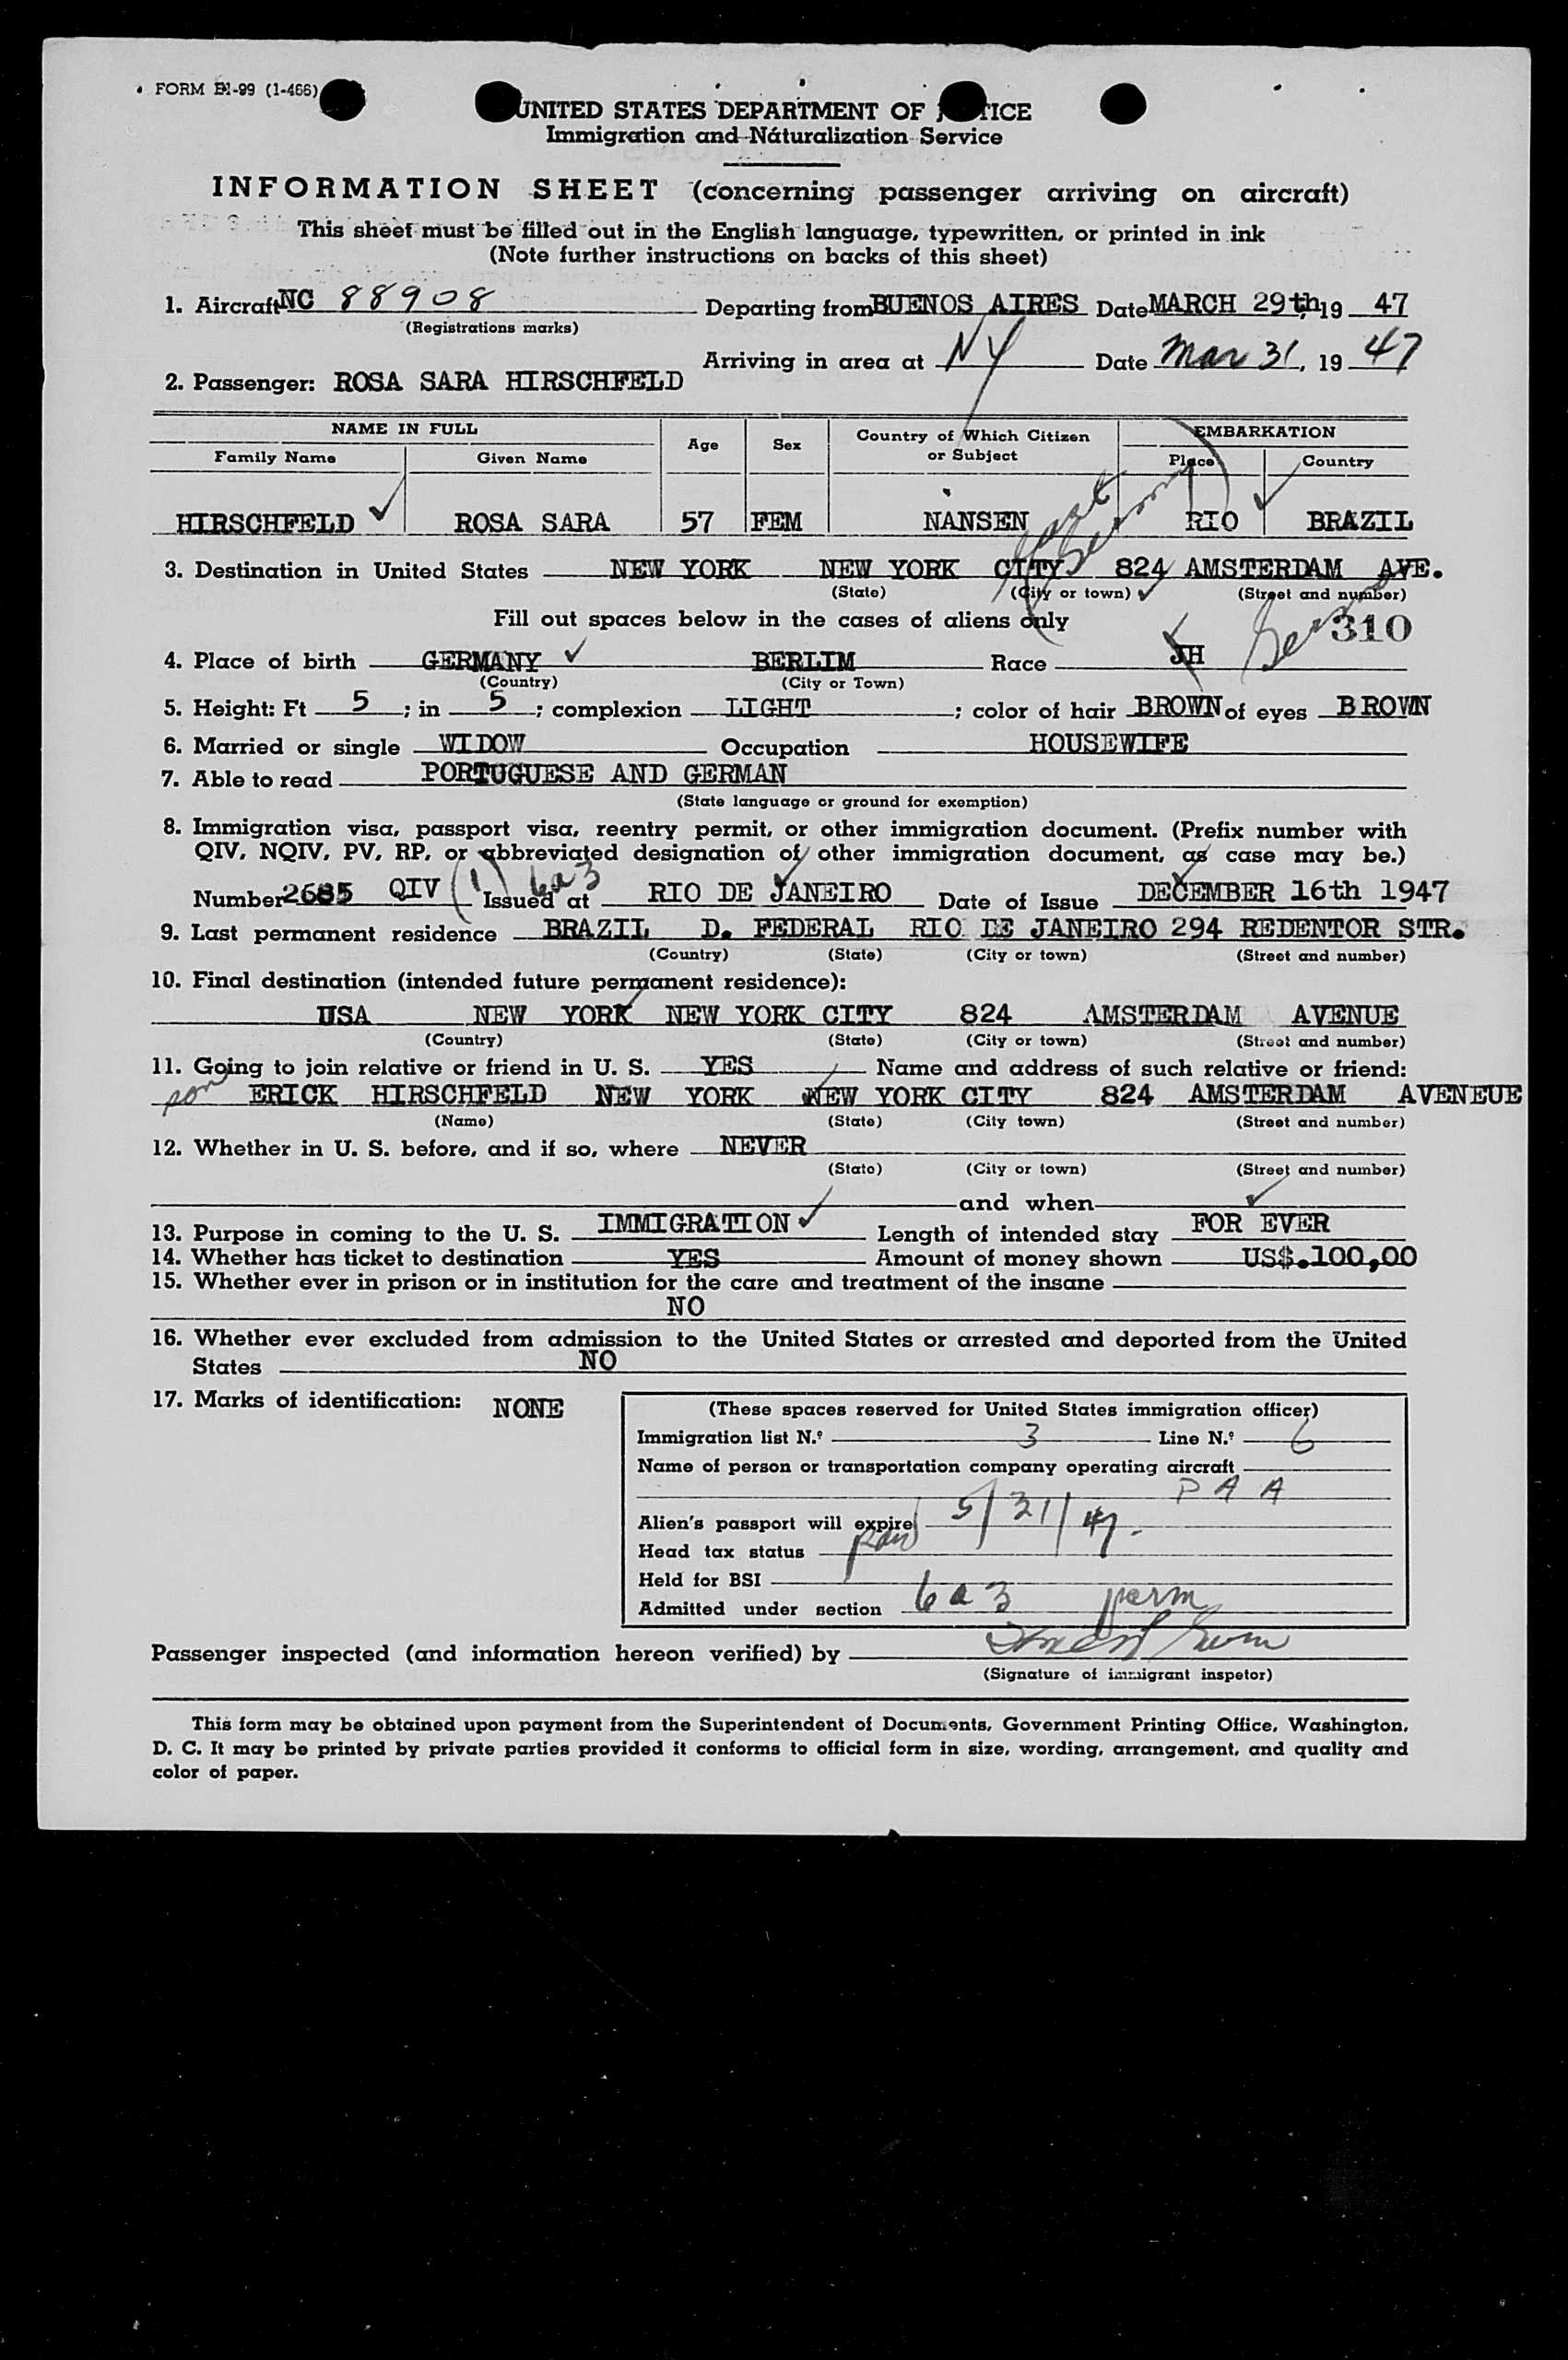 FORM BI-99 (1-466)
UNITED STATES DEPARTMENT OF JUSTICE
Immigration and Naturalization Service
INFORMATION SHEET (concerning passenger arriving on aircraft)
This sheet must be filled out in the English language, typewritten, or printed in ink
(Note further instructions on backs of this sheet)
1. Aircraft NC 88908 Departing from BUENOS AIRES Date MARCH 29th, 19 47
(Registrations marks)
Arriving in area at NY Date Mar 31, 19 47
2. Passenger: ROSA SARA HIRSCHFELD
NAME IN FULL Age Sex Country of Which Citizen or Subject EMBARKATION
Family Name Given Name Place Country
HIRSCHFELD ROSA SARA 57 FEM NANSEN RIO BRAZIL
3. Destination in United States NEW YORK NEW YORK CITY 824 AMSTERDAM AVE.
(State) (City or town) (Street and number)
Fill out spaces below in the cases of aliens only 310
4. Place of birth GERMANY BERLIM Race JH
(Country) (City or Town)
5. Height: Ft 5; in 5; complexion LIGHT; color of hair BROWN of eyes BROWN
6. Married or single WIDOW Occupation HOUSEWIFE
7. Able to read PORTUGUESE AND GERMAN
(State language or ground for exemption)
8. Immigration visa, passport visa, reentry permit, or other immigration document. (Prefix number with
QIV, NQIV, PV, RP, or abbreviated designation of other immigration document, as case may be.)
Number 2685 QIV (1) 6a3 Issued at RIO DE JANEIRO Date of Issue DECEMBER 16th 1947
9. Last permanent residence BRAZIL D. FEDERAL RIO DE JANEIRO 294 REDENTOR STR.
(Country) (State) (City or town) (Street and number)
10. Final destination (intended future permanent residence):
USA NEW YORK NEW YORK CITY 824 AMSTERDAM AVENUE
(Country) (State) (City or town) (Street and number)
11. Going to join relative or friend in U. S. YES Name and address of such relative or friend:
son ERICK HIRSCHFELD NEW YORK NEW YORK CITY 824 AMSTERDAM AVENEUE
(Name) (State) (City town) (Street and number)
12. Whether in U. S. before, and if so, where NEVER
(State) (City or town) (Street and number)
and when
13. Purpose in coming to the U. S. IMMIGRATION Length of intended stay FOR EVER
14. Whether has ticket to destination YES Amount of money shown US$.100,00
15. Whether ever in prison or in institution for the care and treatment of the insane
NO
16. Whether ever excluded from admission to the United States or arrested and deported from the United
States NO
17. Marks of identification: NONE
(These spaces reserved for United States immigration officer)
Immigration list N.º 3 Line N.º 6
Name of person or transportation company operating aircraft
PAA
Alien's passport will expire 5/31/47.
Head tax status paid
Held for BSI
Admitted under section 6a3 perm
Passenger inspected (and information hereon verified) by
(Signature of immigrant inspetor)
This form may be obtained upon payment from the Superintendent of Documents, Government Printing Office, Washington,
D. C. It may be printed by private parties provided it conforms to official form in size, wording, arrangement, and quality and
color of paper.